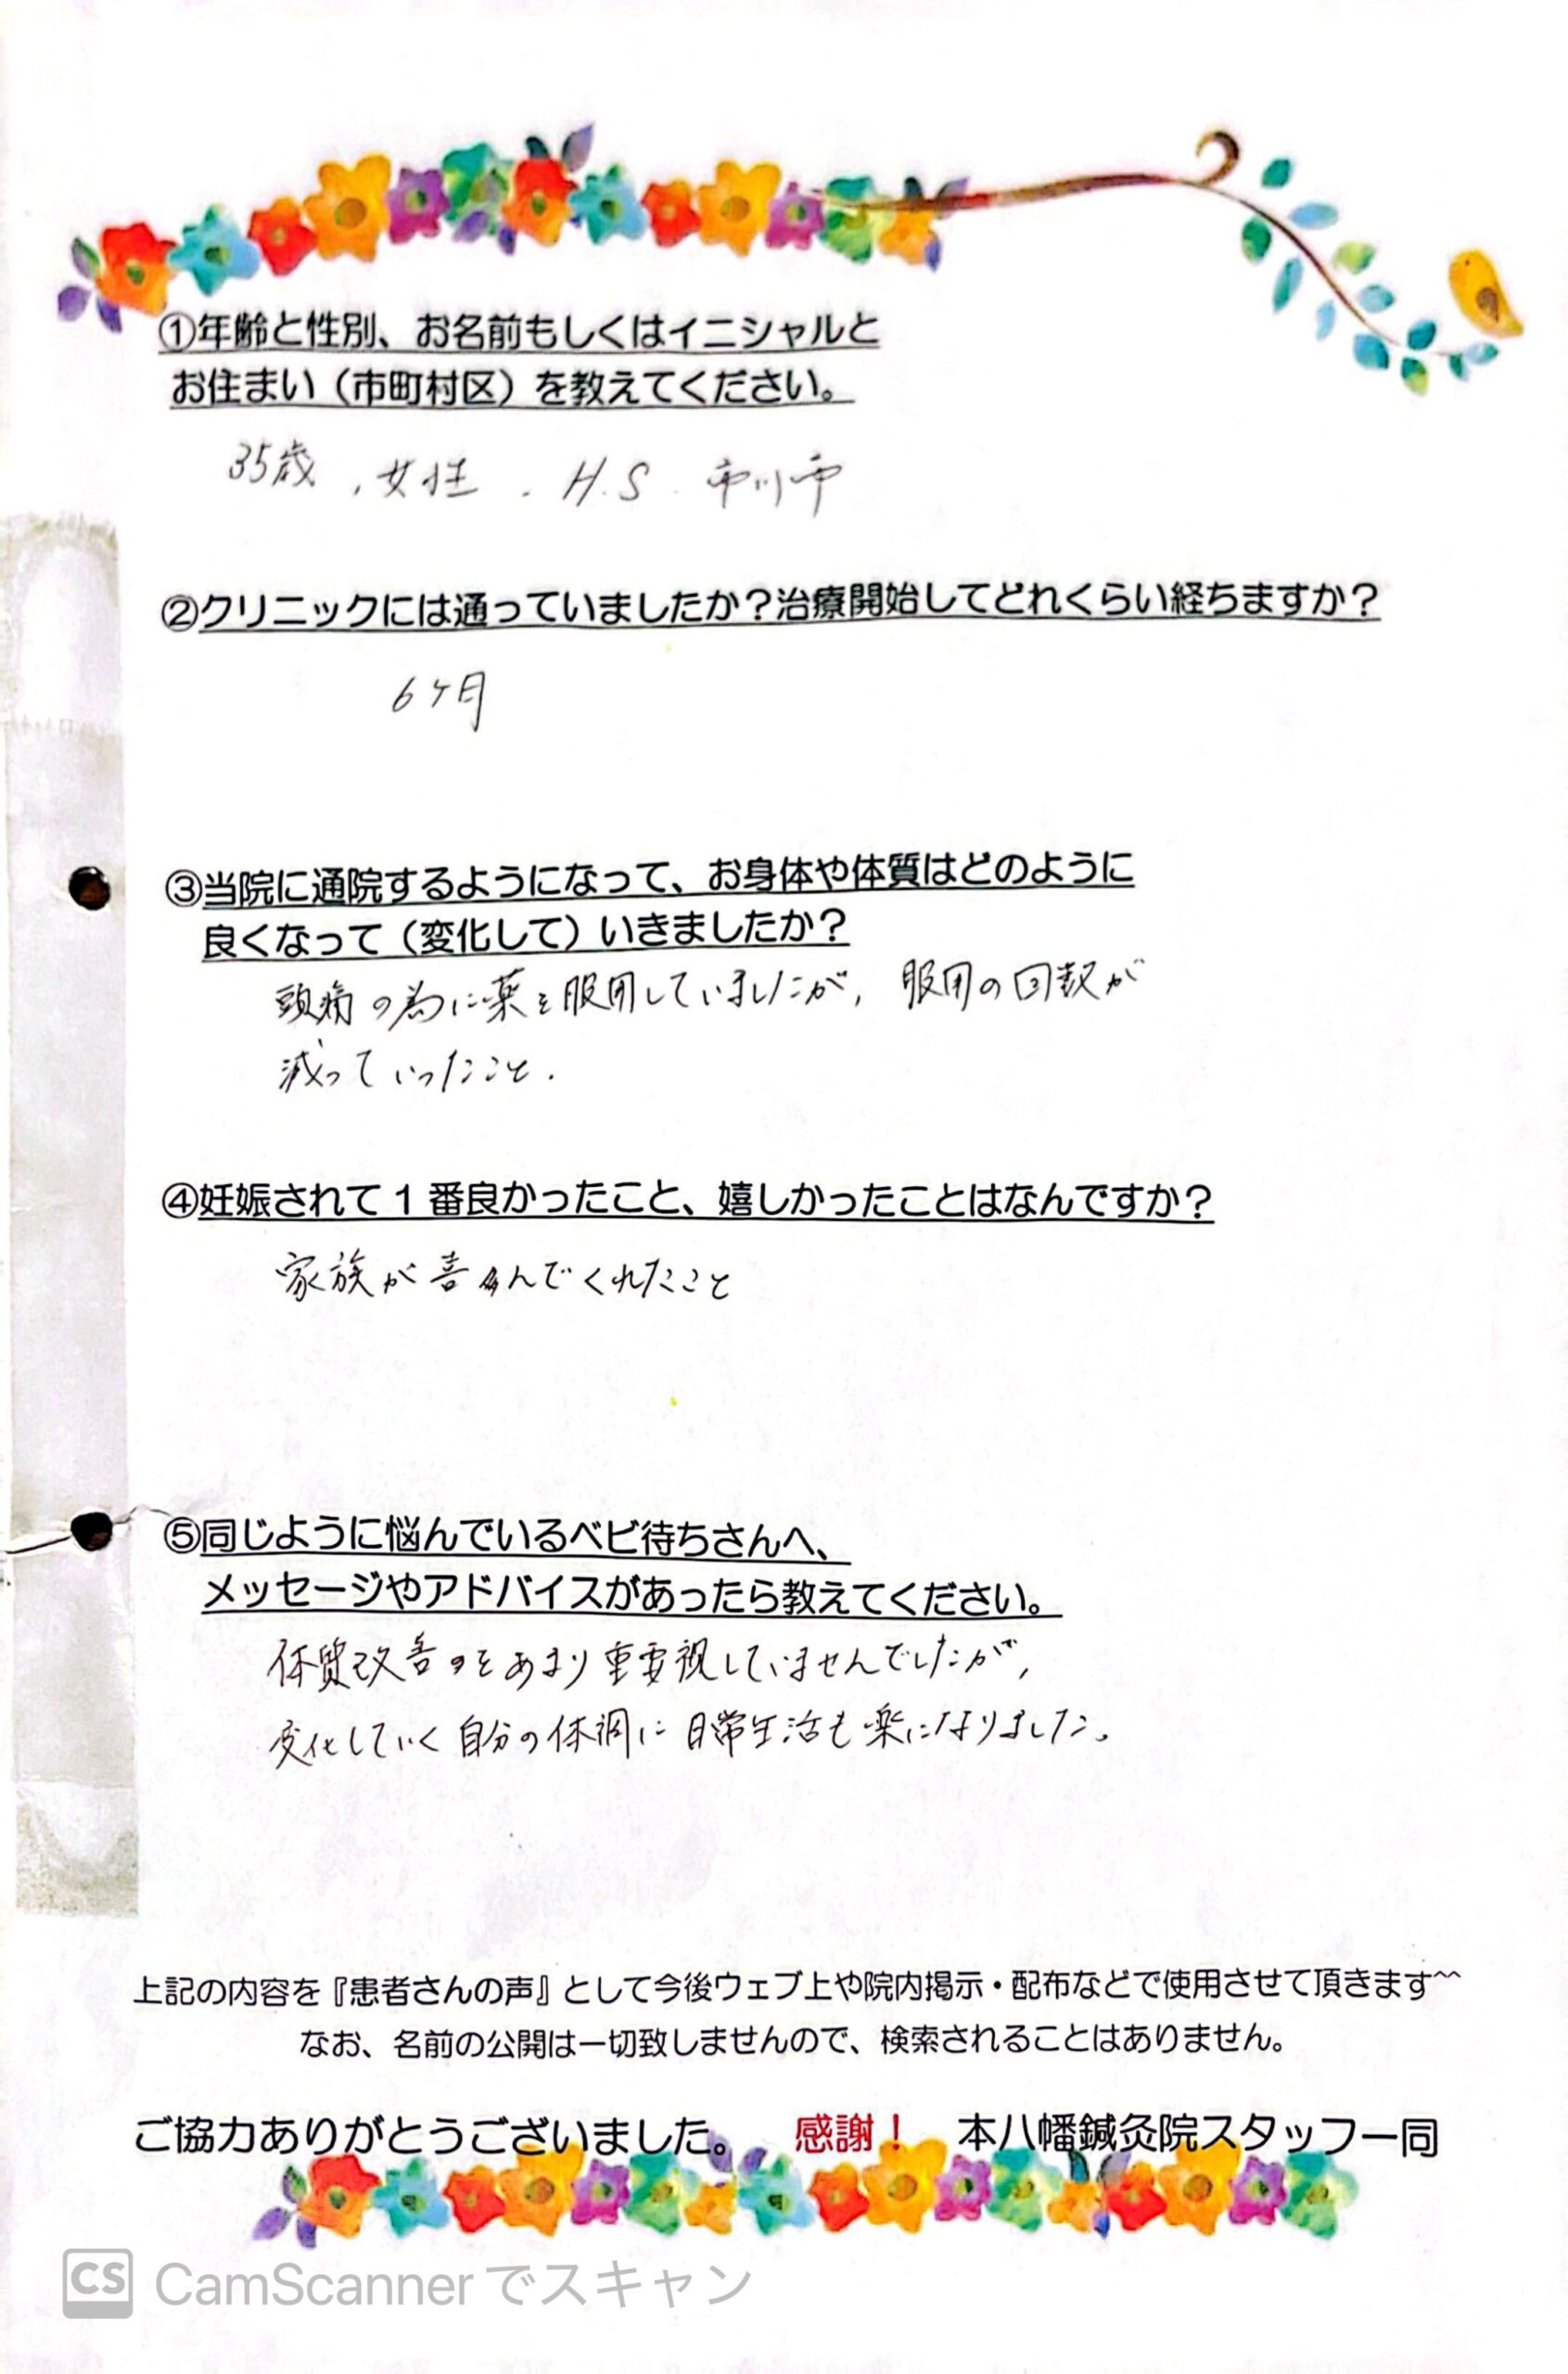 ①年齢と性別、お名前もしくはイニシャルと
お住まい（市町村区）を教えてください。
35歳、女性 . H.S. 市川市
②クリニックには通っていましたか？治療開始してどれくらい経ちますか？
6ヶ月
③当院に通院するようになって、お身体や体質はどのように
良くなって（変化して）いきましたか？
頭痛の為に薬を服用していましたが、服用の回数が
減っていったこと.
④妊娠されて1番良かったこと、嬉しかったことはなんですか？
家族が喜んでくれたこと
⑤同じように悩んでいるベビ待ちさんへ、
メッセージやアドバイスがあったら教えてください。
体質改善をあまり重要視していませんでしたが、
変化していく自分の体調に日常生活も楽になりました。
上記の内容を『患者さんの声』として今後ウェブ上や院内掲示・配布などで使用させて頂きます^^
なお、名前の公開は一切致しませんので、検索されることはありません。
ご協力ありがとうございました。 感謝！ 本八幡鍼灸院スタッフ一同
CS CamScannerでスキャン